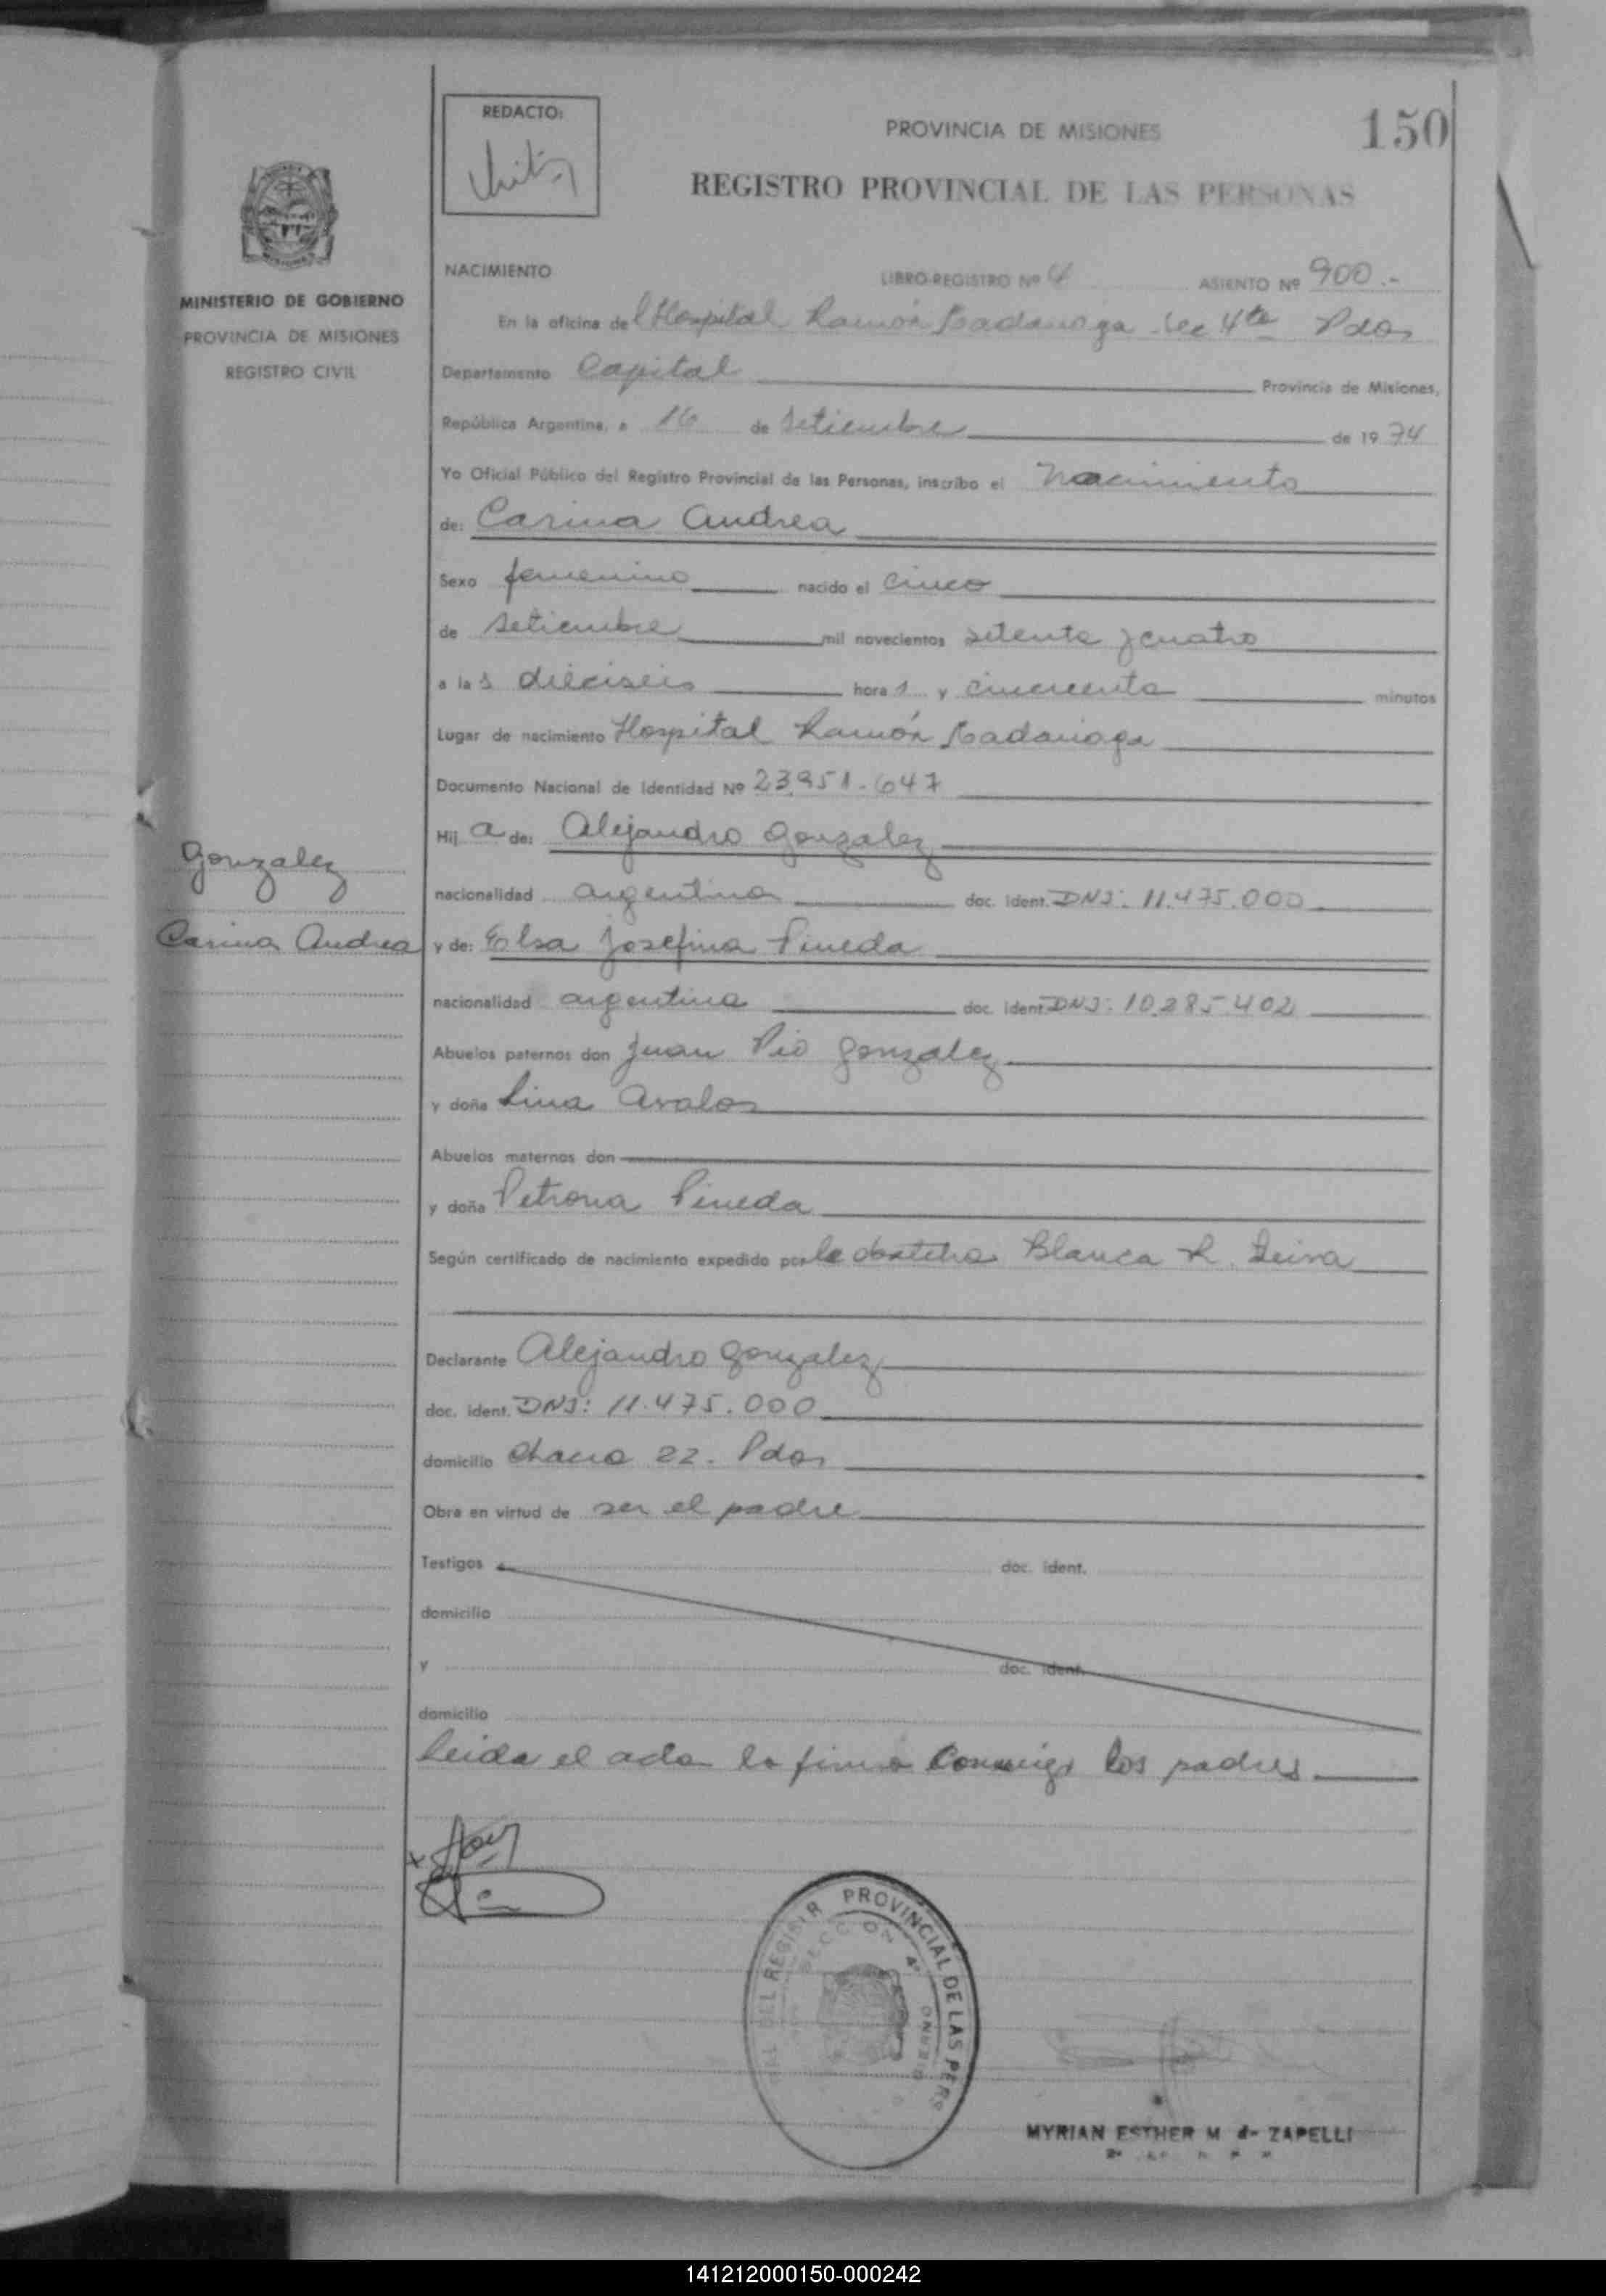 REDACTO:
PROVINCIA DE MISIONES
150
REGISTRO PROVINCIAL DE LAS PERSONAS
MINISTERIO DE GOBIERNO
PROVINCIA DE MISIONES
REGISTRO CIVIL
NACIMIENTO LIBRO-REGISTRO Nº 4 ASIENTO Nº 900.-
En la oficina del Hospital Ramón Madariaga Sec 4ta Pdas
Departamento Capital Provincia de Misiones,
República Argentina, a 16 de Setiembre de 1974
Yo Oficial Público del Registro Provincial de las Personas, inscribo el Nacimiento
de: Carina Andrea
Sexo femenino nacido el cinco
de Setiembre mil novecientos setenta y cuatro
a las dieciseis horas y cincuenta minutos
Lugar de nacimiento Hospital Ramón Madariaga
Documento Nacional de Identidad Nº 23.951.647
Hija de: Alejandro Gonzalez
nacionalidad argentina doc. ident. DNI: 11.475.000
Gonzalez
Carina Andrea
y de: Elsa Josefina Pineda
nacionalidad argentina doc. ident. DNI: 10.285.402
Abuelos paternos don Juan Pio Gonzalez
y doña Lina Avalos
Abuelos maternos don
y doña Petrona Pineda
Según certificado de nacimiento expedido por la obstetra Blanca R. Leiva
Declarante Alejandro Gonzalez
doc. ident. DNI: 11.475.000
domicilio Chacra 22. Pdas
Obra en virtud de ser el padre
Testigos doc. ident.
domicilio
y doc. ident.
domicilio
Leida el acta la firma conmigo los padres
PROVINCIAL DE LAS PERS
MYRIAN ESTHER M de ZAPELLI
141212000150-000242